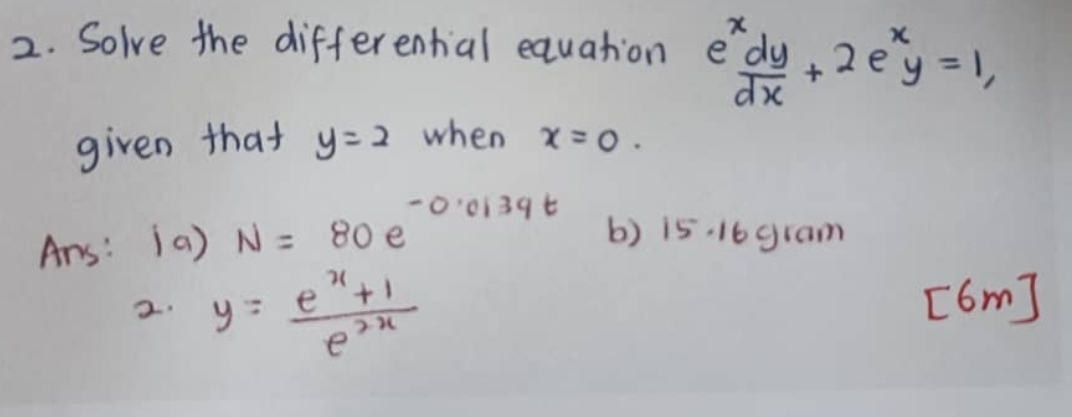 2. Solve the differential equation e^x dy/dx + 2e^x y = 1,
given that y = 2 when x = 0.
Ans: 1a) N = 80 e^-0.0139t b) 15.16 gram
2. y = (e^x + 1)/e^2x [6m]